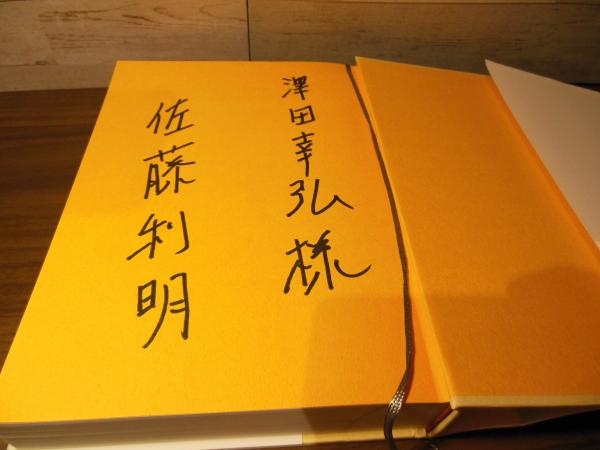 澤田幸弘様
佐藤利明